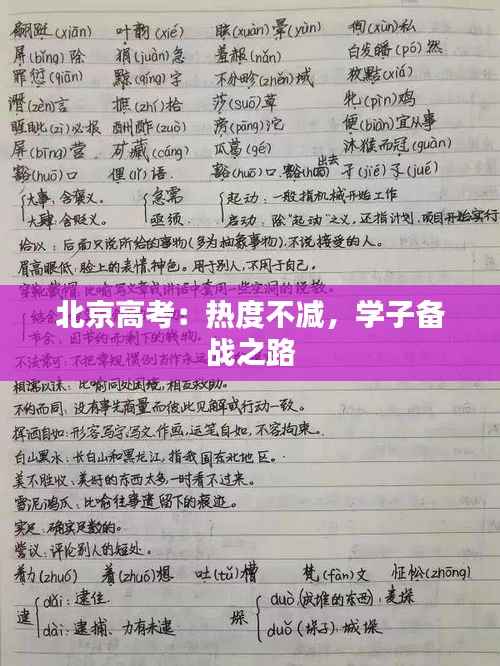 翩跹(xiān) 叶韵(xié) 眩(xuàn)晕(yùn) 徇(xùn)私
屏(bǐng)除 狷(juàn)急 羞赧(nǎn) 白发皤(pó)然
罪愆(qiān) 黥(qíng)字 不分畛(zhěn)域 狡黠(xiá)
谮(zèn)言 摭(zhí)拾 莎(suō)草 牝(pìn)鸡
睚眦(zì)必报 酬酢(zuò) 滂(pāng)沱 便(biàn)宜从事
屏(bīng)营 矿藏(cáng) 瓜葛(gé) 沐猴而冠(guàn)
豁(huò)口 俚(lǐ)语 豁(huō)口 豁(huō)出去 孑(jié)孓(jué)
大事:含褒义。 急需 起动:一般指机械开始工作
大肆:含贬义。 亟须 启动:除“起动”之义,还指计划、项目开始实行
给以:后面只说所给的事物(多为抽象事物),不说接受的人。
眉高眼低:脸上的表情、神色。用于别人,不用于自己。
北京高考:热度不减,学子备
战之路
相濡以沫:比喻同处困境,相互救助。
不约而同:没有事先商量而彼此见解或行动一致。
挥洒自如:形容写字、写文、作画,运笔自如,不容拘束。
白山黑水:长白山和黑龙江,指我国东北地区。
美不胜收:美好的东西太多一时看不过来。
雪泥鸿爪:比喻往事遗留下的痕迹。
实足:确实足数的。
訾议:评论别人的短处。
着力(zhuó) 着(zhuó)想 吐(tǔ)槽 梵(fàn)文 怔忪(zhōng)
逮 dǎi:逮住 垛 duò(成堆的东西):麦垛
dài:逮捕、力有未逮 duǒ(垛子):城垛